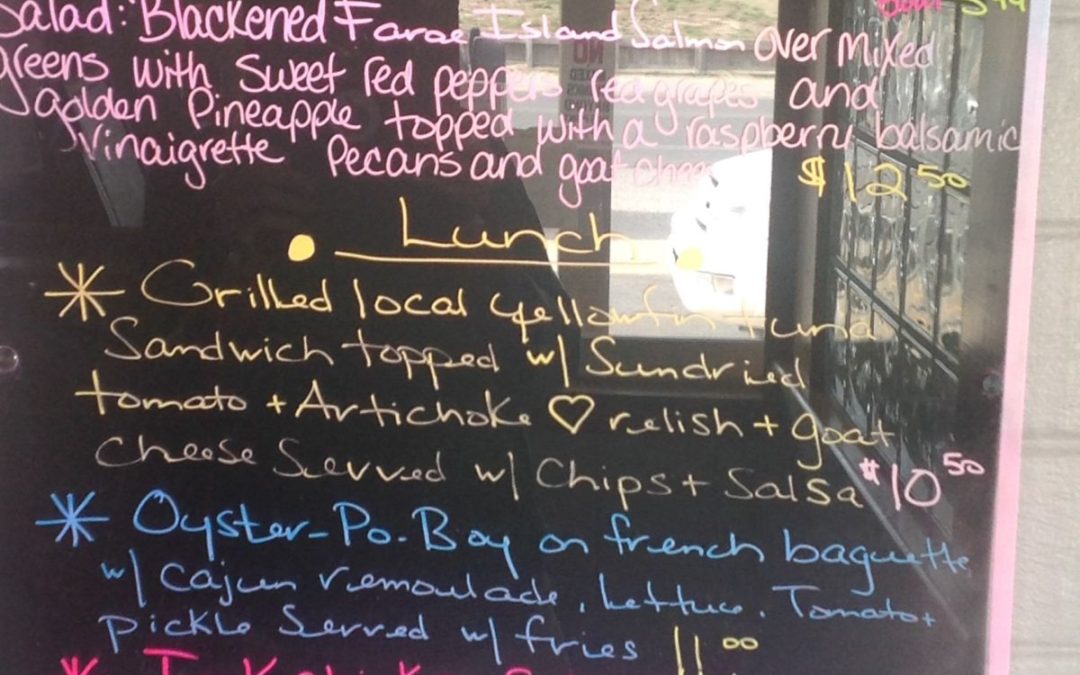 Bowl 5.99
Salad: Blackened Faroe Island Salmon over mixed
greens with sweet red peppers red grapes and
golden Pineapple topped with a raspberry balsamic
Vinaigrette Pecans and goat cheese $12.50
Lunch
* Grilled local yellowfin tuna
Sandwich topped w/ Sundried
tomato + Artichoke ♡ relish + goat
Cheese Served w/ Chips + Salsa $10.50
* Oyster-Po-Boy on french baguette
w/ Cajun remoulade, lettuce, Tomato +
Pickle Served w/ fries 11.00